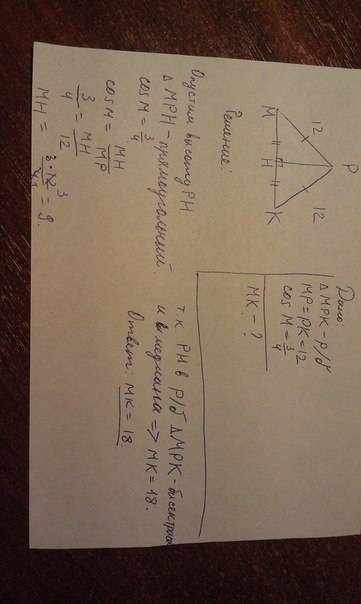 P
12
12
M
H
K
Дано:
△MPK - р/б
MP = PK = 12
cos M = 3/4
MK - ?
Решение:
Опустим высоту PH
△MPH - прямоугольный
cos M = 3/4
cos M = MH/MP
3/4 = MH/12
MH = 3·12/4 = 9.
т.к PH в р/б △MPK - биссектриса
и медиана => MK = 18.
Ответ: MK = 18.